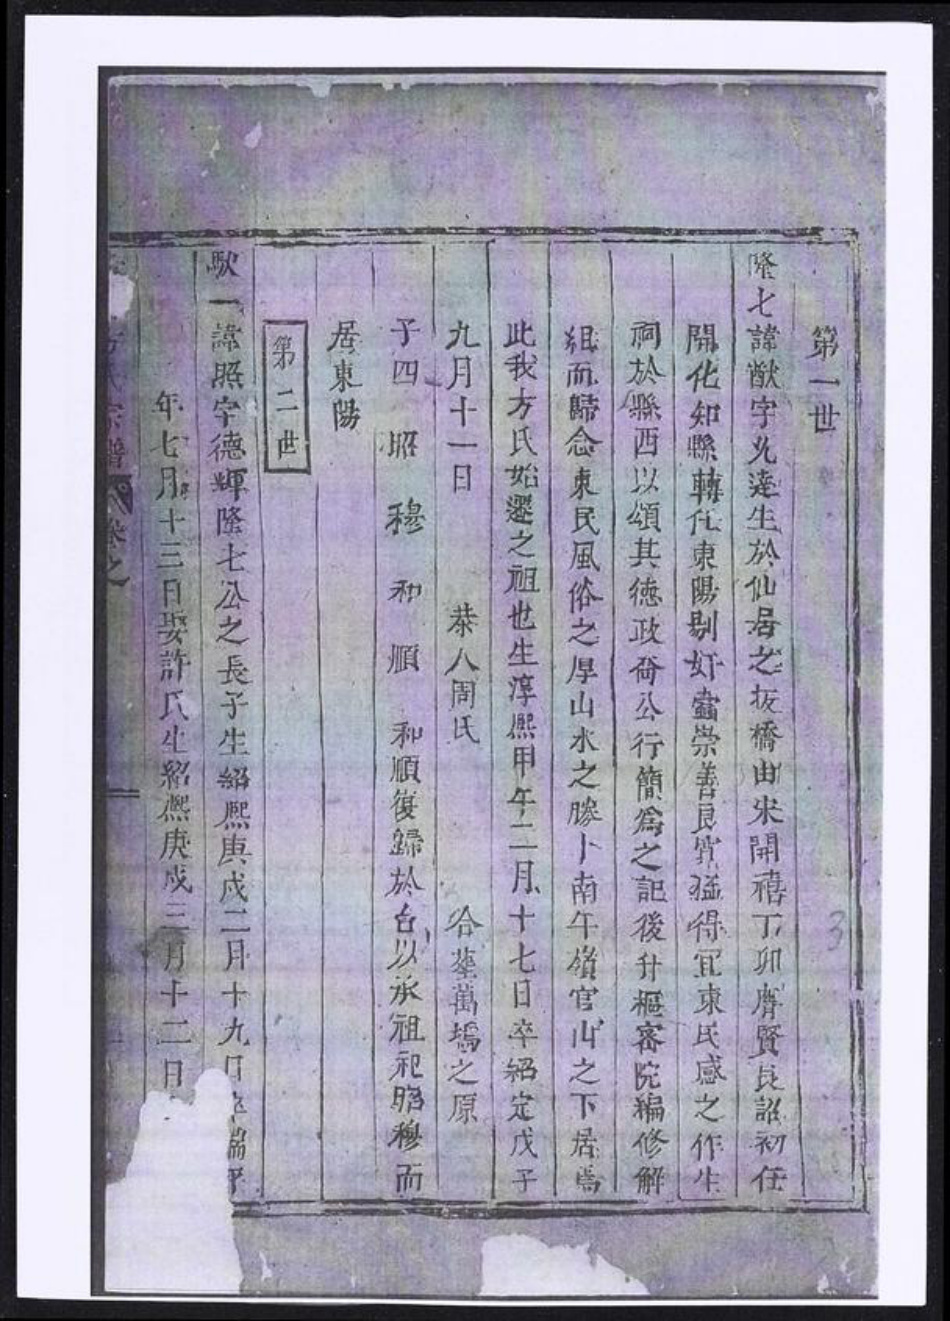 第一世
隆七諱猷字允達生於仙居之板橋由宋開禧丁卯膺賢良詔初任
開化知縣轉任東陽剔奸蠹崇善良寬猛得宜東民感之作生
祠於縣西以頌其德政喬公行簡爲之記後升樞密院編修解
組而歸念東民風俗之厚山水之勝卜南午嶺官山之下居焉
此我方氏始遷之祖也生淳熙甲午二月十七日卒紹定戊子
九月十一日 恭八周氏 合塟萬塢之原
子四 昭 穆 和 順 和順復歸於台以承祖祀昭穆而
居東陽
第二世
馱一諱照字德輝隆七公之長子生紹熙庚戌二月十九日卒端平
年七月十三日娶許氏生紹熙庚戌三月十二日
方氏宗譜 卷之
3